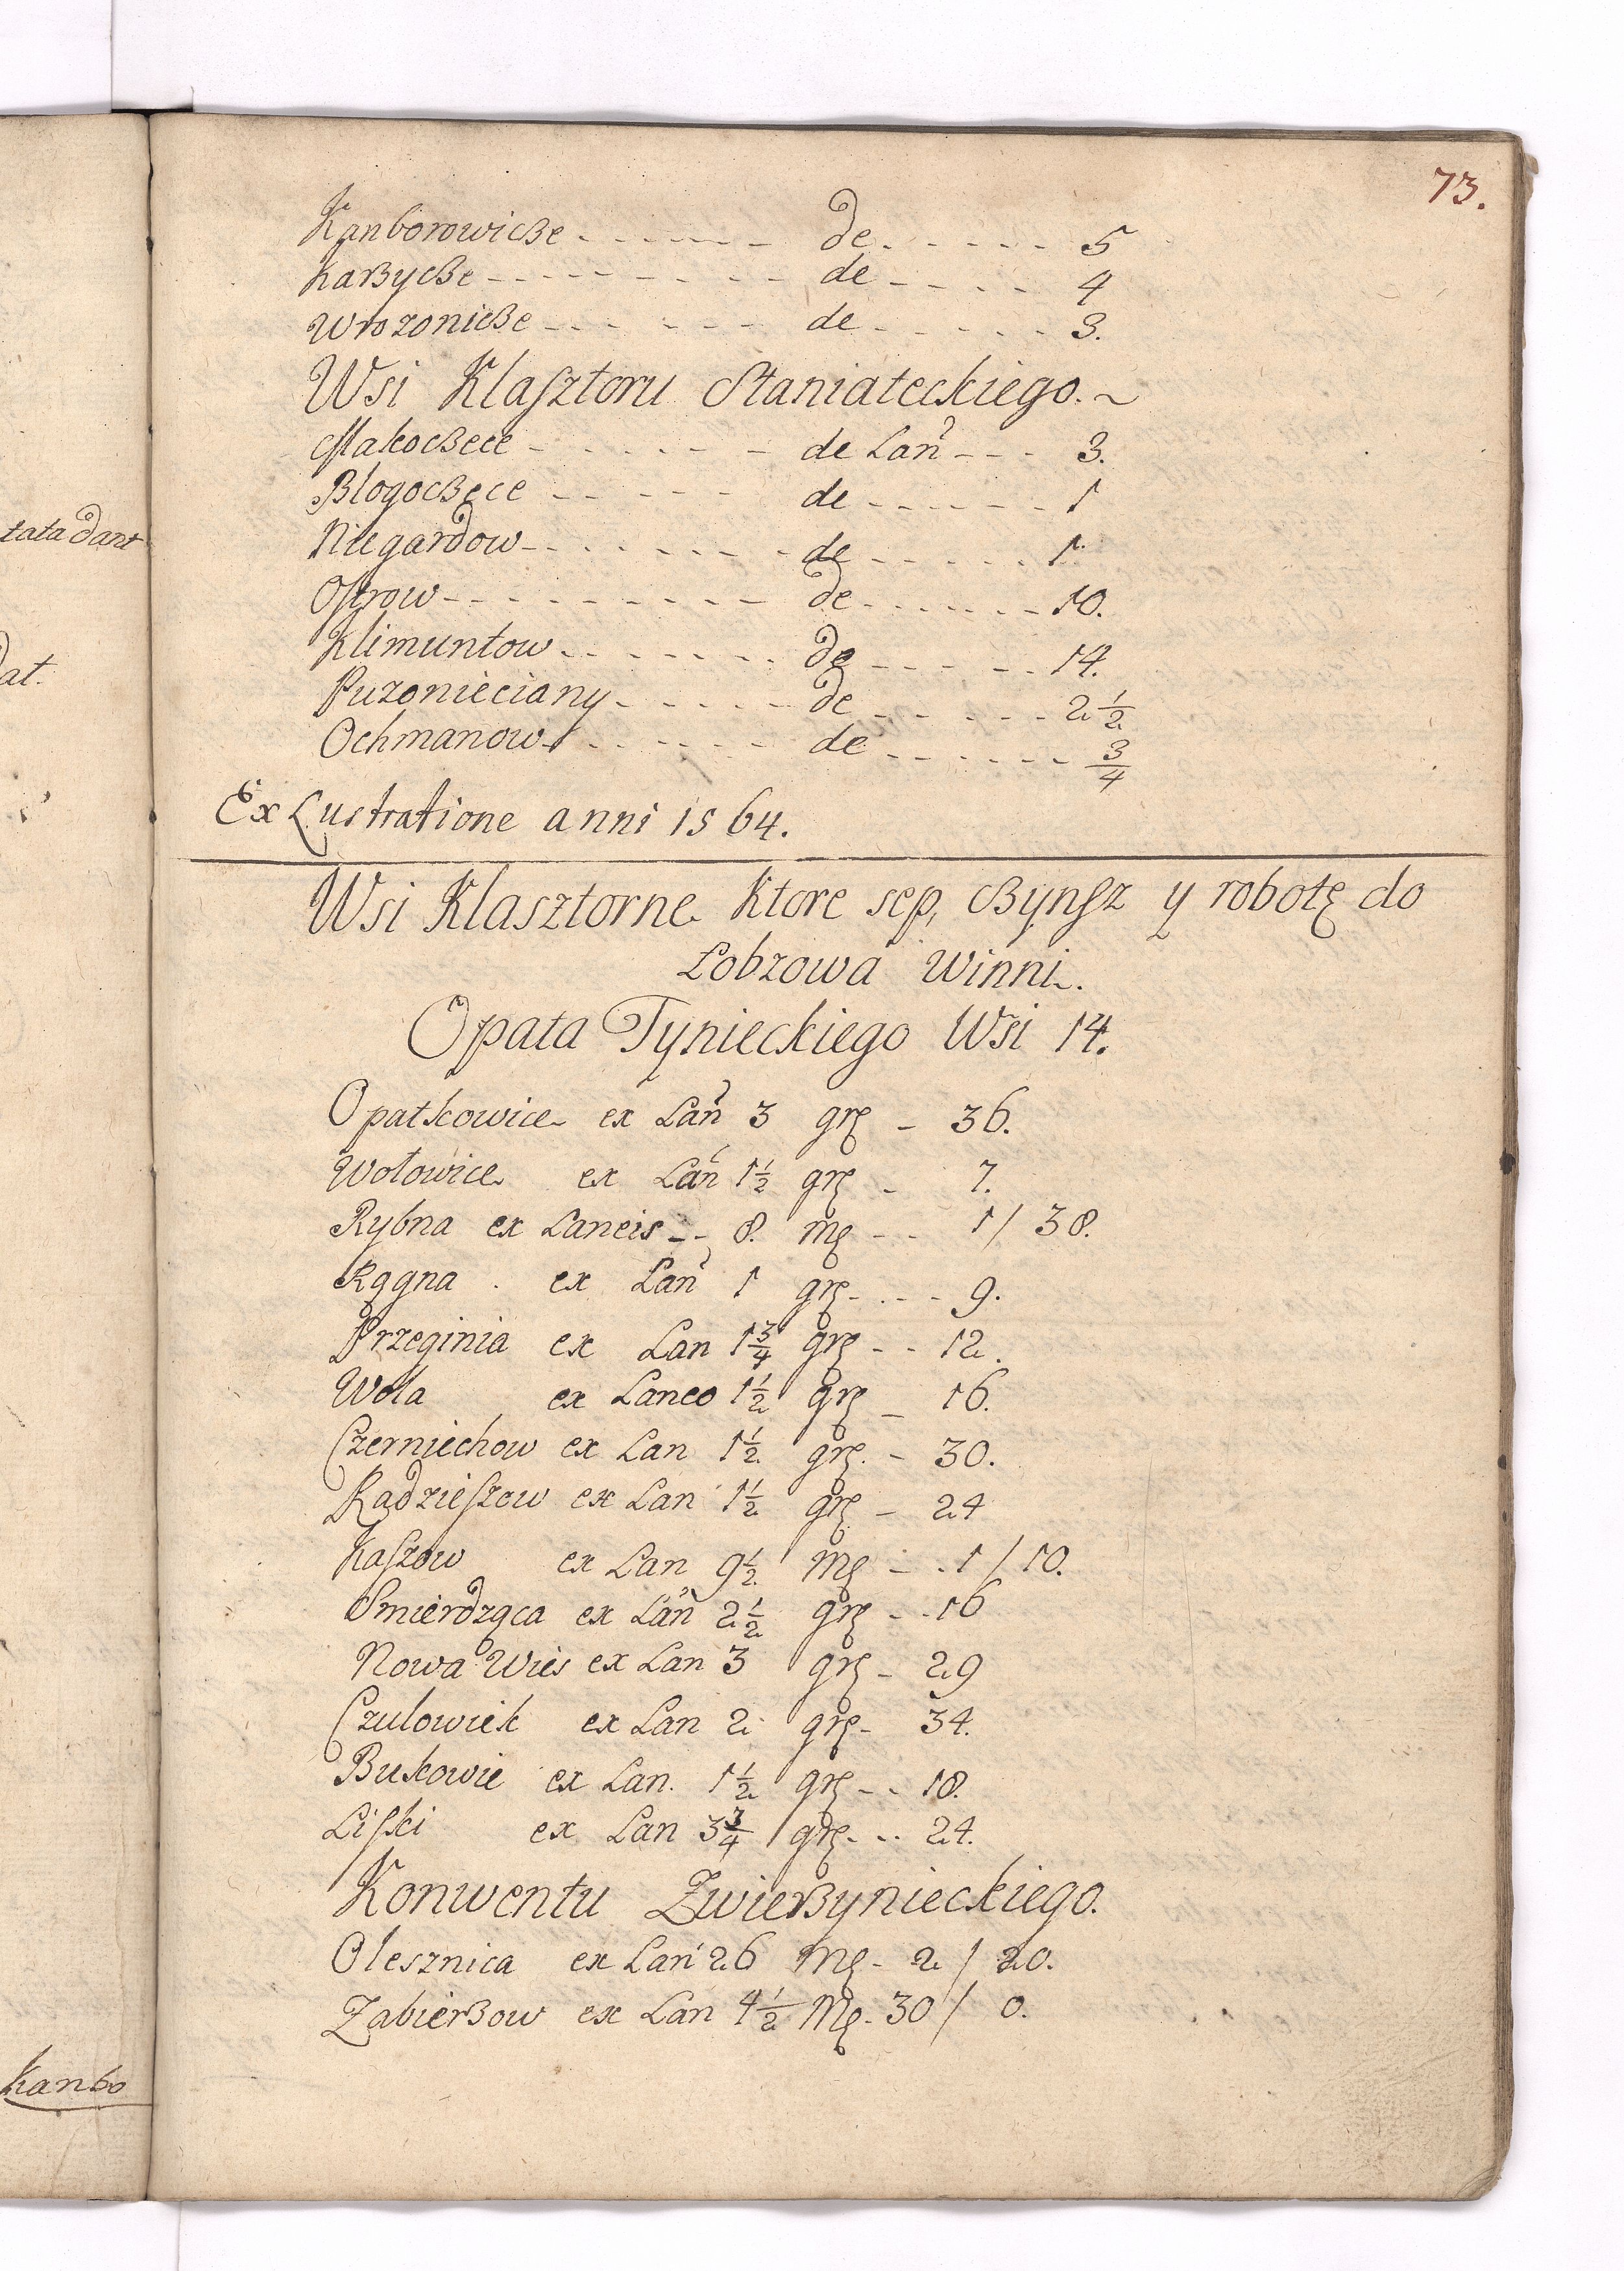 73.
Kanborowicze - - - - - - de - - - - - 5
Karzycze - - - - - - - - de - - - - 4
Wrozonicze - - - - - - de - - - - - 3.
Wsi Klasztoru Staniateckiego.
Makoczece - - - - - - de Lan - - - 3.
Blogoczece - - - - - de - - - - - 1
Niegardow - - - - - - - de - - - - - 1
Ostrow - - - - - - - - - de - - - - - - 10.
Klimuntow - - - - - - de - - - - - 14.
Puzonieciany - - - - - de - - - - - 2 1/2
Ochmanow - - - - - - de - - - - - - 3/4
Ex Lustratione anni 1564.
Wsi Klasztorne Ktore sep, Czynsz y robotę do
Łobzowa Winni.
Opata Tynieckiego Wsi 14.
Opatkowice ex Lan 3 grę - 36.
Wołowice ex Lan 1 1/2 grę - 7.
Rybna ex Laneis - - 8. Mę - - 1/ 38.
Rągna . ex Lan 1 grę - - - - 9.
Przeginia ex Lan 1 3/4 grę - - 12.
Wola ex Laneo 1 1/2 grę - 16.
Czerniechow ex Lan 1 1/2 grę. - 30.
Radzieszow ex Lan 1 1/2 grę - 24
Kaszow ex Lan 9 1/2 Mę - . 1 / 10.
Smierdząca ex Lan 2 1/2 grę - - 16
Nowa Wies ex Lan 3 grę - 29
Czulowiek ex Lan 2 grę - 34.
Bukowie ex Lan. 1 1/2 grę - - 18.
Liski ex Lan 3 3/4 grę - - - 24.
Konwentu Zwierzynieckiego.
Olesznica ex Lan 26 Mę - 2 / 20.
Zabierzow ex Lan 4 1/2 Mę - 30 / 0.
tata dant
at.
Kanbo